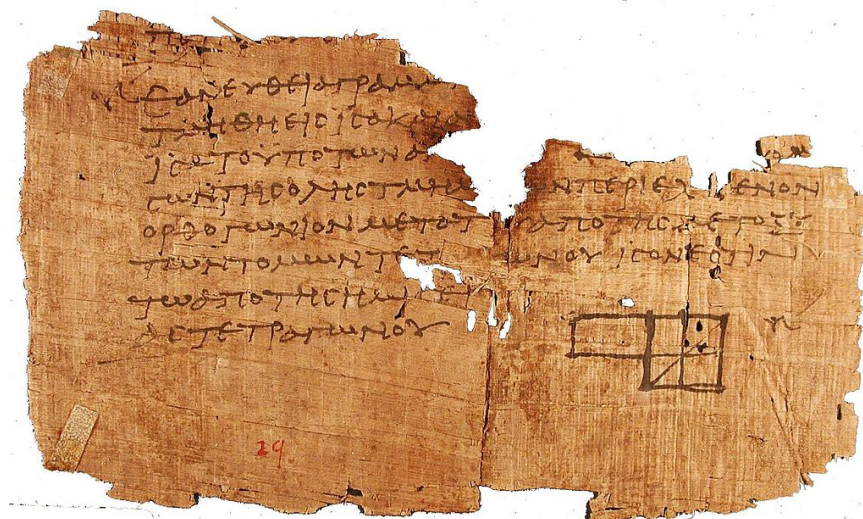 ΕΑΝ ΕΥΘΕΙΑ ΓΡΑΜ
ΤΜΗΘΗ ΕΙϹ ΙϹΑ ΚΑΙ Α
ΙϹΑ ΤΟ ΥΠΟ ΤΩΝ Α
ϹΩΝ ΤΗϹ ΟΛΗϹ ΤΜΗΜ ΩΝ ΠΕΡΙΕΧ ΜΕΝΟΝ
ΟΡΘΟΓΩΝΙΟΝ ΜΕΤΑ Τ Υ ΑΠΟ ΤΗϹ ΜΕΤΟΞΥ
ΤΩΝ ΤΟΜΩΝ ΤΕΤ ΩΝΟΥ ΙϹΟΝ ΕϹΤΙΝ
ΤΩ ΑΠΟ ΤΗϹ ΗΜΙϹΕΙ
ΑϹ ΤΕΤΡΑΓΩΝΟΥ
29.